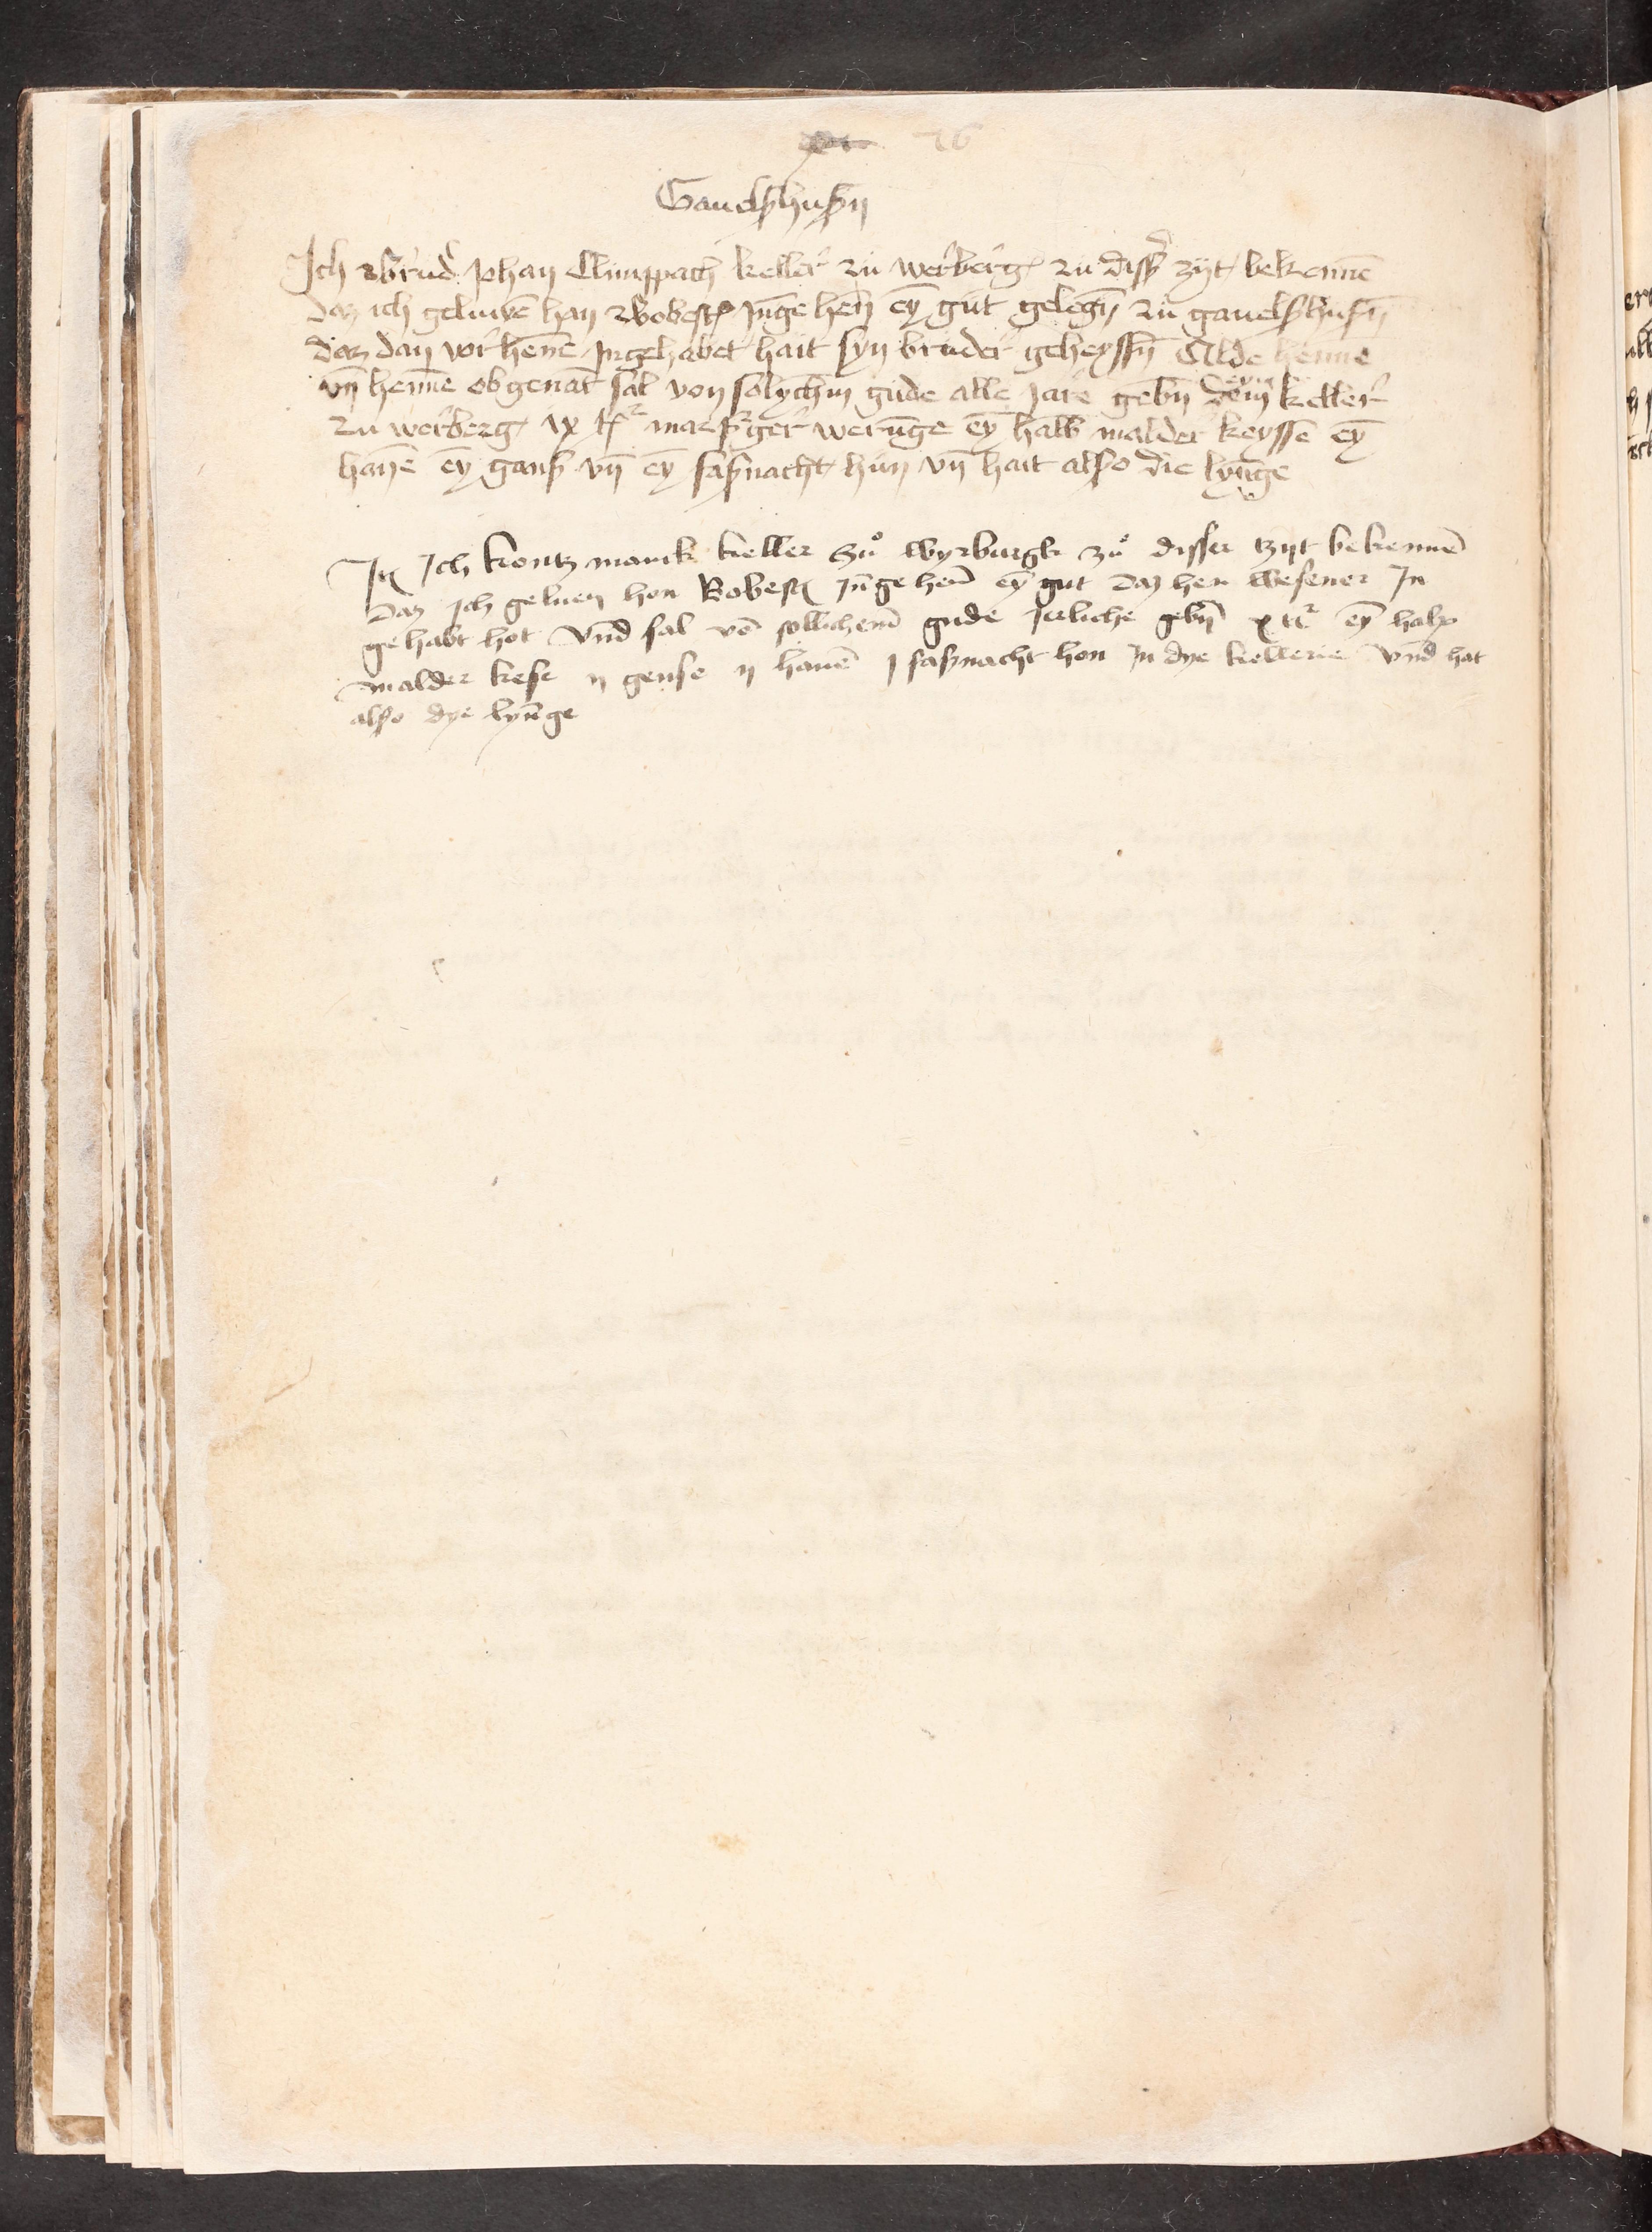 26
Gauelßhußn
Ich Brud Johan Clumppach keller zu werberg zu disser zyt bekenne
daz ich geluwē han Robest Jūge hen eȳ gut gelegn zu gauelßhusn
daz dan vor henne Jngehabet hait syn bruder geheyssn Alde henne
vn̄ henne obgenāt sal von solychm gude alle Jare gebn̄ dem keller
zu werberg ix tr mar ger werunge eȳ halb malder keysse eȳ
hane eȳ ganß vn̄ eȳ faßnacht hun vn̄ hait also die lyūge
Jt Ich kontz manck keller zů wyrburgk zů disser tzyt bekennē
daz Jch geluen hon Robest Jūge hen̄ eȳ gut daz hen wesener Jn
gehabt hot vnd sal vō sollichem gude Jerliche gebn̄ x tr eȳ halp
malder kese ij gense ij hanē j faßnacht hon Jn dye kellerie vnd hat
also dye lyūge